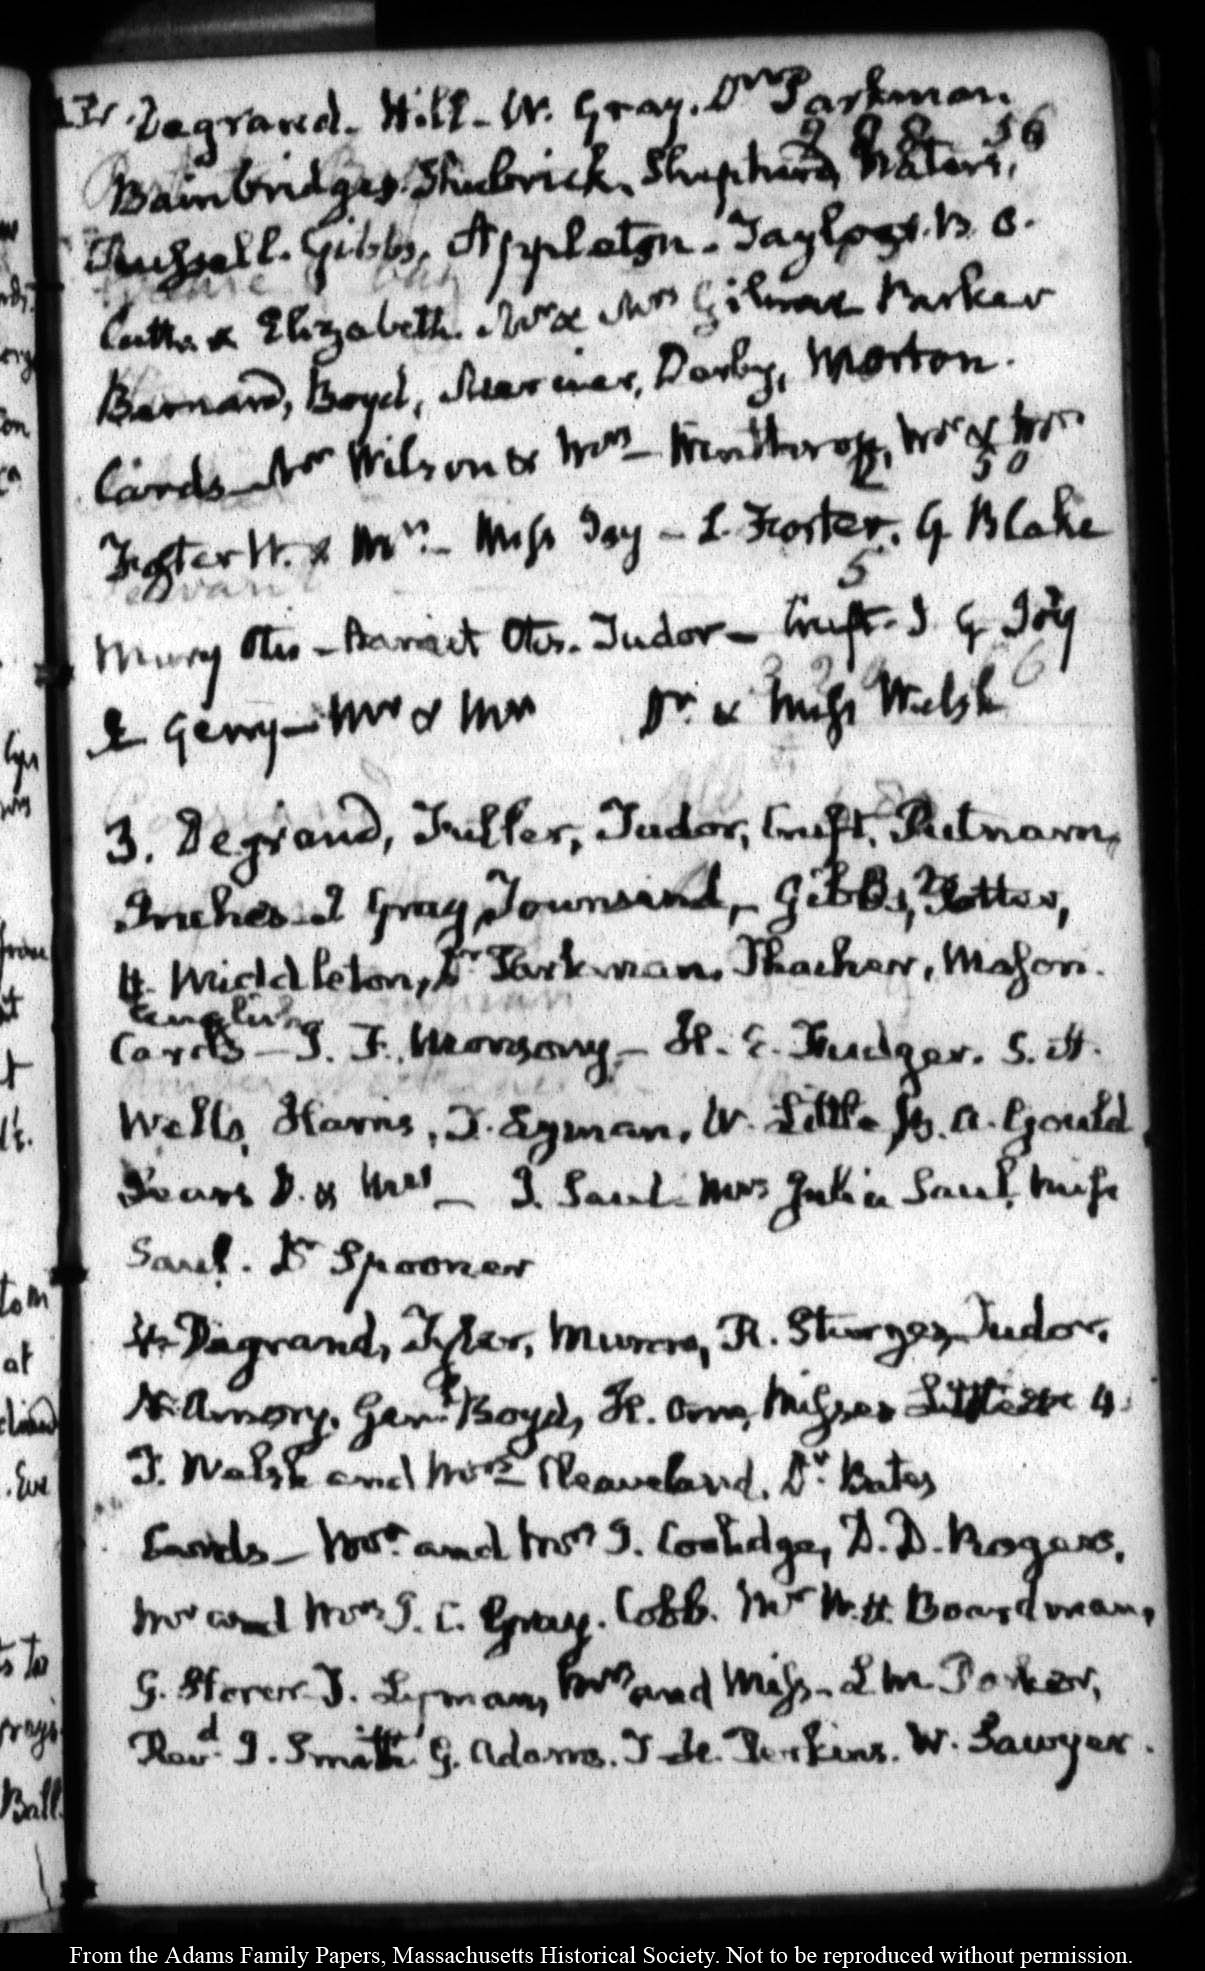 Degrand. Hill. W. Gray. Drs Parkman.
Bainbridges. Shubrick. Shephard, Waters,
Russell. Gibbs, Appleton. B. O.
& Elizabeth. Mr & Mrs Parker
Barnard, Boyd, Derby, Morton.
Cards Mr Wilson & Mrs Winthrop, Mr & Mrs
Foster W. & Mrs. Miss Joy - L. Foster. G Blake
5
Mary Otis - Harriet Otis. Tudor - Cruft. J G Joy
E Gerry - Mr & Mrs Dr. & Miss Welsh
3. Degrand, Fuller, Tudor, Cruft, Putnam,
Inches J Gray, Townsend, Gibbs, Potter,
H. Middleton, Dr Parkman. Thacher, Mason.
Cards - J. F. H. S. H.
Wells, Harris, T. Lyman, W. Little B. A. Gould
Sears D. & Mrs - J. Saul Mrs Julia Saul, Miss
Saul. Dr Spooner
4. Degrand, Tyler, Munro, R. Sturges, Tudor.
N. Amory. Genl. Boyd, H. Orne, Misses 4.
T. Welsh and Mrs Cleaveland. Dr. Bates
Cards - Mr. and Mrs J. Coolidge, D. D. Rogers.
Mr and Mrs J. C. Gray. Cobb. Mr W. H. Boardman,
G. Storer T. Lyman, Mrs and Miss L M Parker,
Revd. J. Smith G. Adams. T H. Perkins. W. Sawyer.
From the Adams Family Papers, Massachusetts Historical Society. Not to be reproduced without permission.